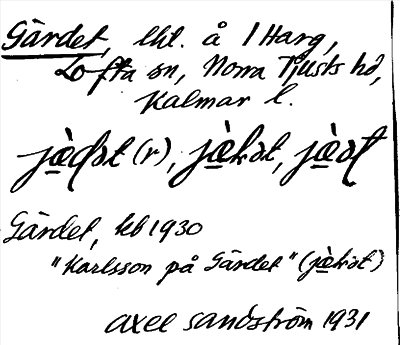 Gärdet, lht. å 1 Harg,
Lofta sn, Norra Tjusts hd,
Kalmar l.
jæ̀dət (r), jæ̀kət, jæ̀ət
Gärdet, kb 1930
"Karlsson på Gärdet" (jæ̀kət)
Axel Sandström 1931